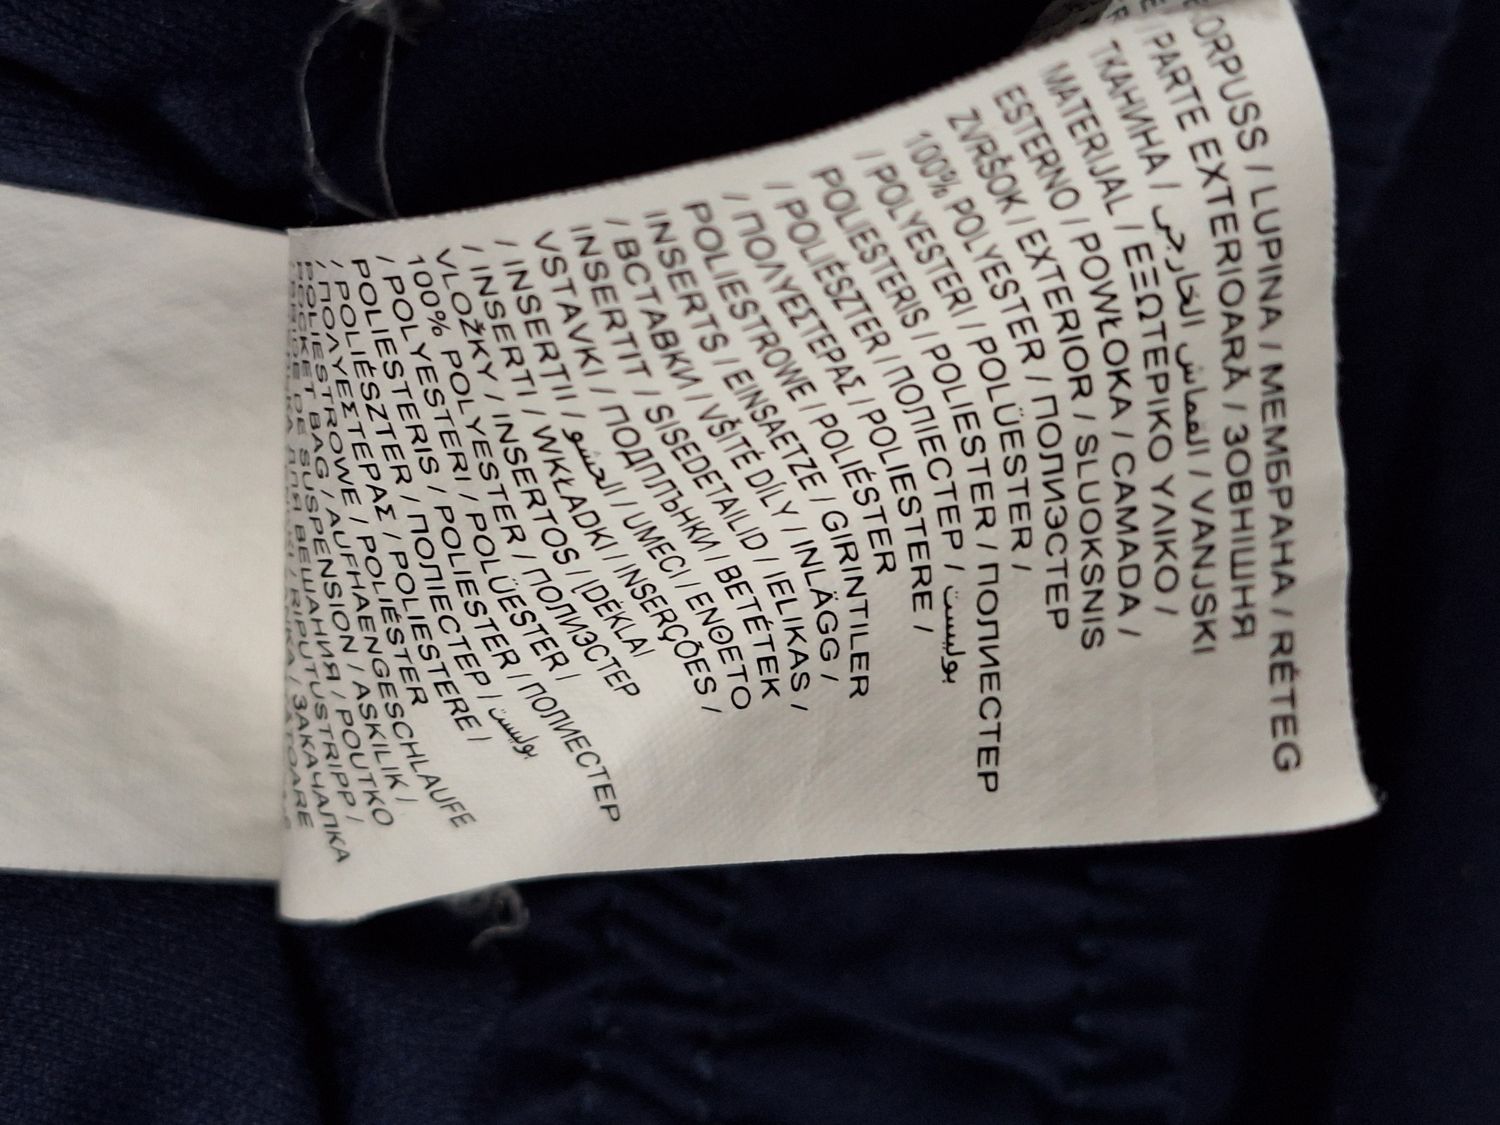 KORPUSS / LUPINA / МЕМБРАНА / RÉTEG
/ PARTE EXTERIOARĂ / ЗОВНІШНЯ
ТКАНИНА / القماش الخارجي / VANJSKI
MATERIJAL / ΕΞΩΤΕΡΙΚΟ ΥΛΙΚΟ /
ESTERNO / POWŁOKA / CAMADA /
ZVRŠOK / EXTERIOR / SLUOKSNIS
100% POLYESTER / ПОЛИЭСТЕР
/ POLYESTERI / POLÜESTER /
POLIESTERIS / POLIESTER / ПОЛИЕСТЕР
/ POLIÉSZTER / ПОЛІЕСТЕР / بوليستر
/ ΠΟΛΥΕΣΤΕΡΑΣ / POLIESTERE /
POLIESTROWE / POLIÉSTER
INSERTS / EINSAETZE / GIRINTILER
/ ВСТАВКИ / VŠITÉ DÍLY / INLÄGG /
INSERTIT / SISEDETAILID / IELIKAS /
VSTAVKI / ПОДПЛЪНКИ / BETÉTEK
/ INSERTII / الحشو / UMECI / ΕΝΘΕΤΟ
/ INSERTI / WKŁADKI / INSERÇÕES /
VLOŽKY / INSERTOS / ĮDĖKLAI
100% POLYESTER / ПОЛИЭСТЕР
/ POLYESTERI / POLÜESTER /
POLIESTERIS / POLIESTER / ПОЛИЕСТЕР
/ POLIÉSZTER / ПОЛІЕСТЕР / بوليستر
/ ΠΟΛΥΕΣΤΕΡΑΣ / POLIESTERE /
POLIESTROWE / POLIÉSTER
POCKET BAG / AUFHAENGESCHLAUFE
DE SUSPENSION / ASKILIK /
ДЛЯ ВЕШАНИЯ / POUTKO
/ RIPUTUSTRIPP /
/ ЗАКАЧАЛКА